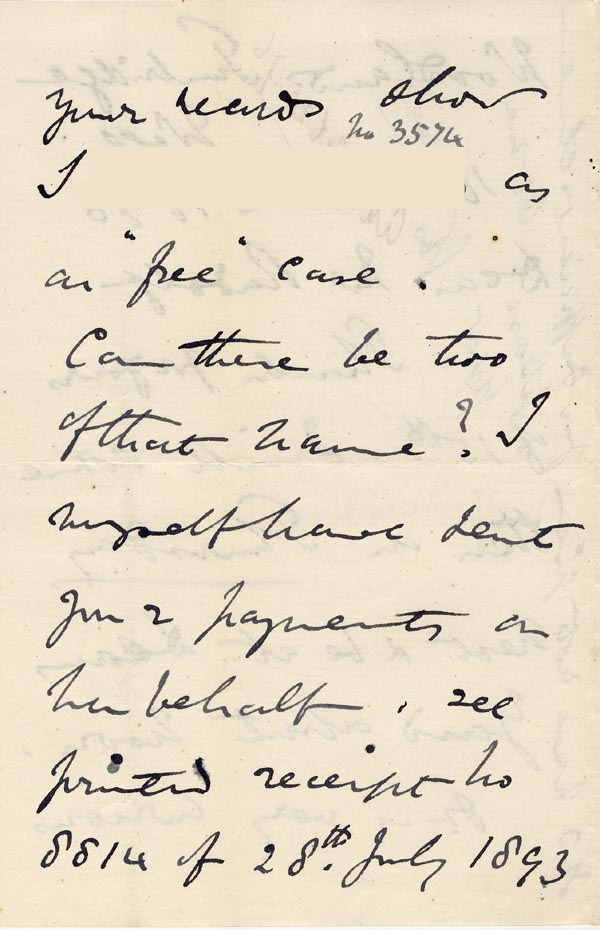 your records show
No 3574
I as
an "free" case.
Can there be two
of that name? I
myself have sent
you 2 payments on
her behalf, see
printed receipt No
8814 of 28th. July 1893